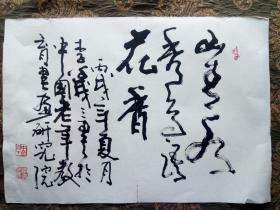 山青水
秀鸟语
花香
丙戌年夏月
李書於
中國老年教
育書画研究院